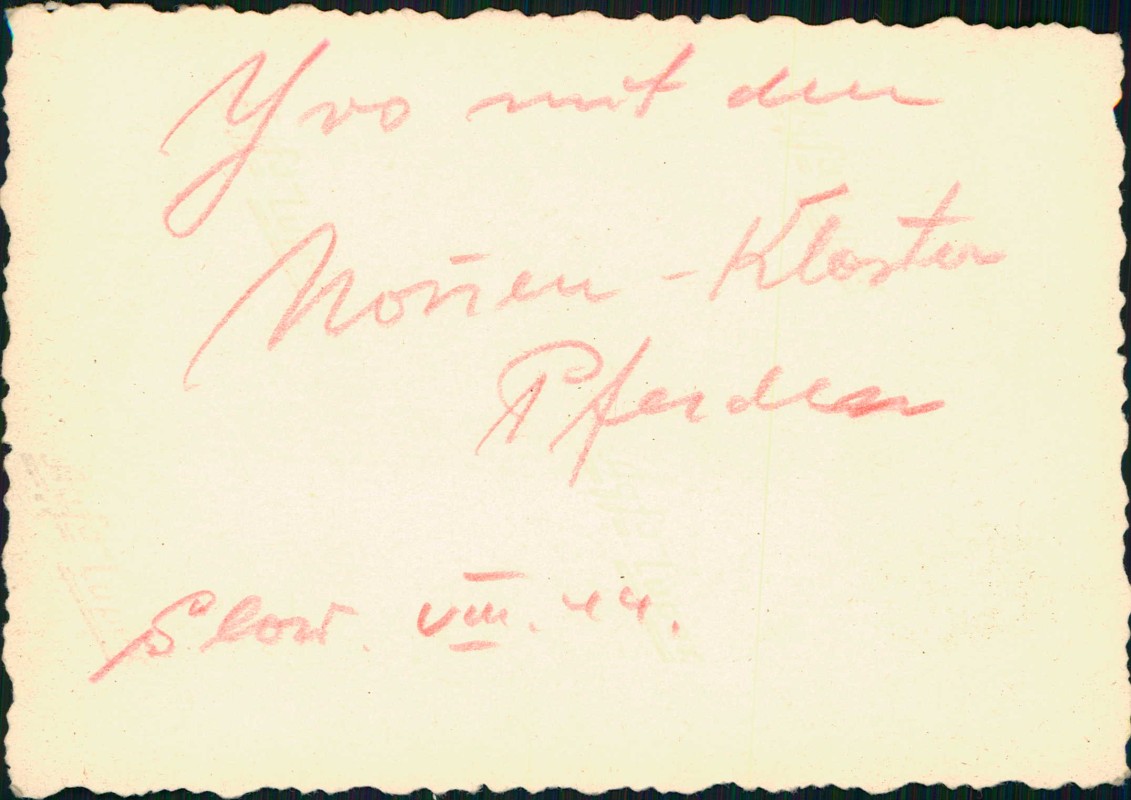 Yvo mit den
Non̄en - Kloster
Pferden
Slow. VIII. 44.